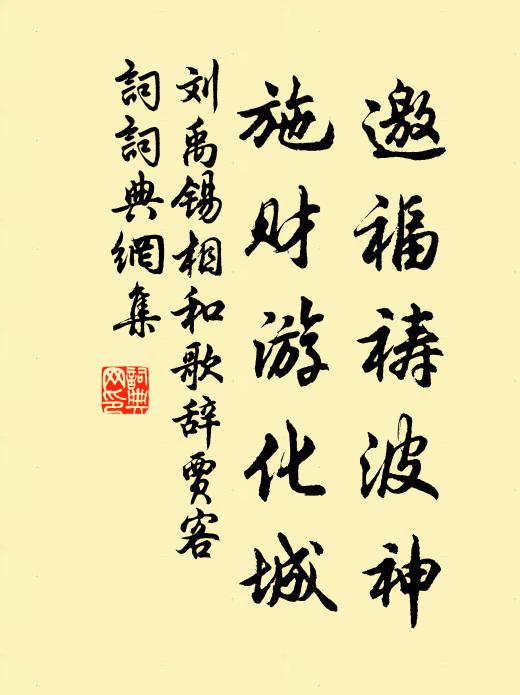 邀福祷波神
施财游化城
刘禹锡相和歌辞贾客
词词典網集
詞典
网印